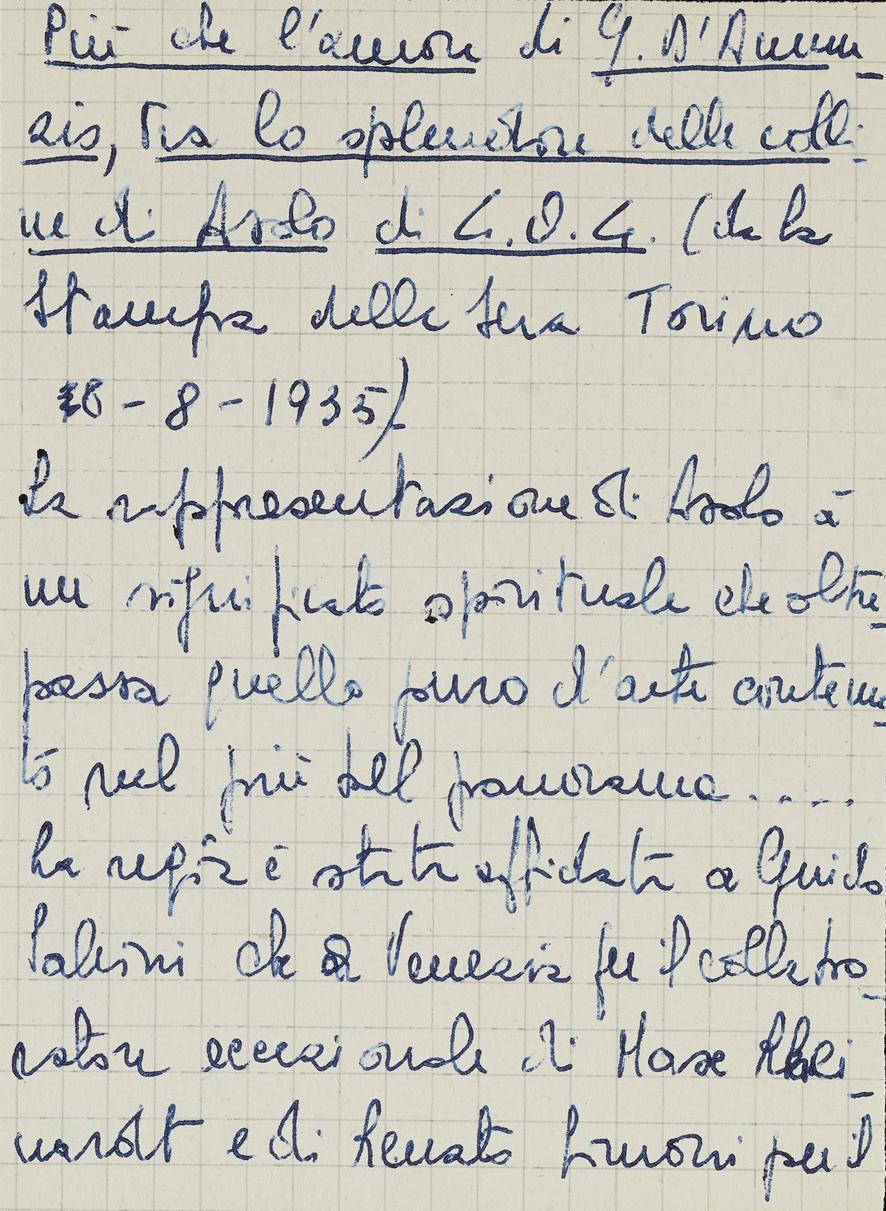 Più che l'amore di G. D'Annun_
zio, tra lo splendore delle colli_
ne di Asolo di G.O.G. (da la
Stampa della Sera Torino
18-8-1935)
La rappresentazione di Asolo à
un significato spirituale che oltre_
passa quello puro d'arte contenu_
to nel più bel panorama.....
La regia è stata affidata a Guido
Salvini che a Venezia fu il collabo_
ratore eccezionale di Max Rhei_
nardt e di Renato Simoni per il